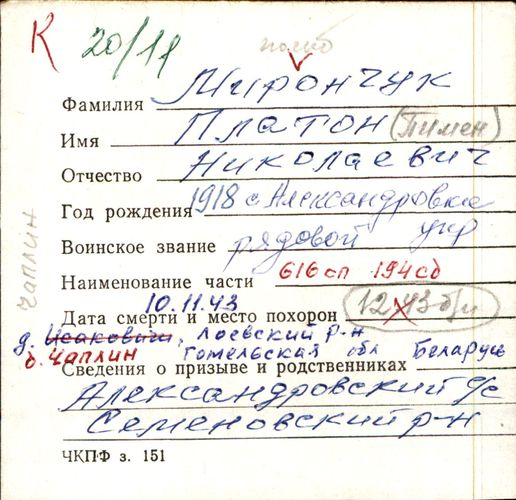 К 20/11 погиб
Фамилия Мирончук
Имя Платон (Пимен)
Отчество Николаевич
Год рождения 1918 с. Александровка
Воинское звание рядовой укр
Наименование части 616 сп 194 сд
10.11.43
Дата смерти и место похорон 12.43 б/и
д. Исаковичи, Лоевский р-н
д. Чаплин Гомельская обл Беларусь
Сведения о призыве и родственниках
Александровский с/с
Семеновский р-н
ЧКПФ з. 151
Чаплин